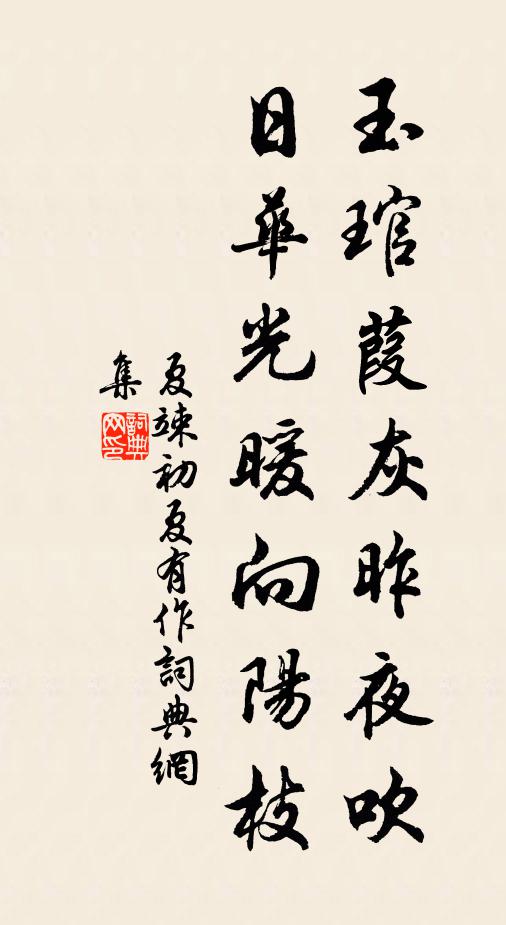 玉琯葭灰昨夜吹
日華光暖向陽枝
夏竦初夏有作詞典網
集
詞典
网印